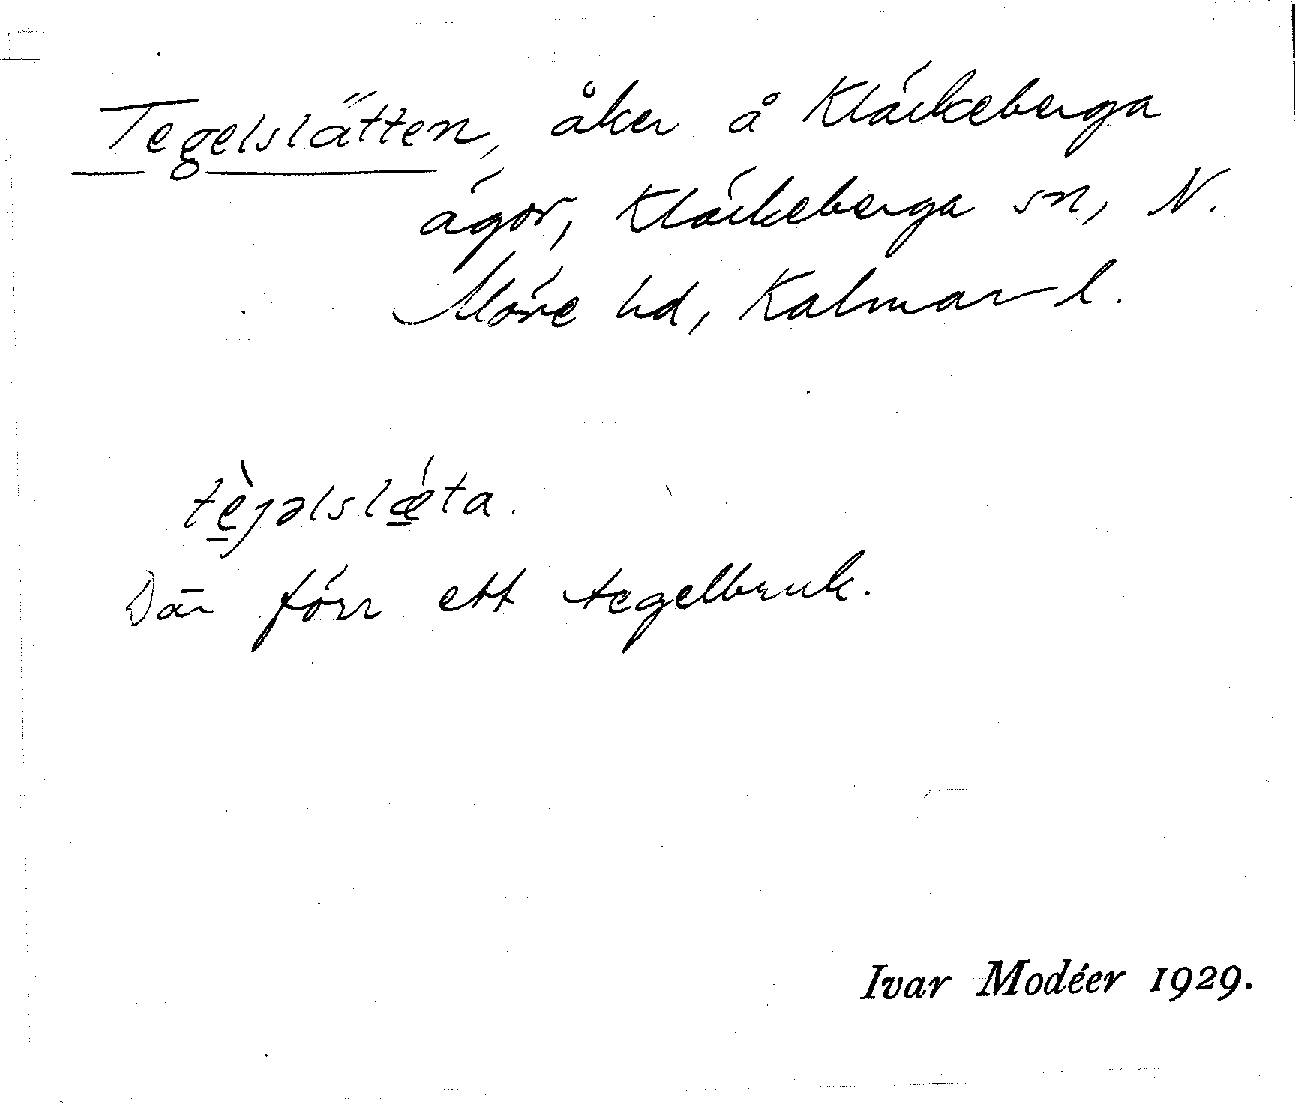 Tegelslätten, åker å Kläckeberga
ägor, Kläckeberga sn, N.
Möre hd, Kalmar l.
tèjəlslǽta.
Där förr ett tegelbruk.
Ivar Modéer 1929.